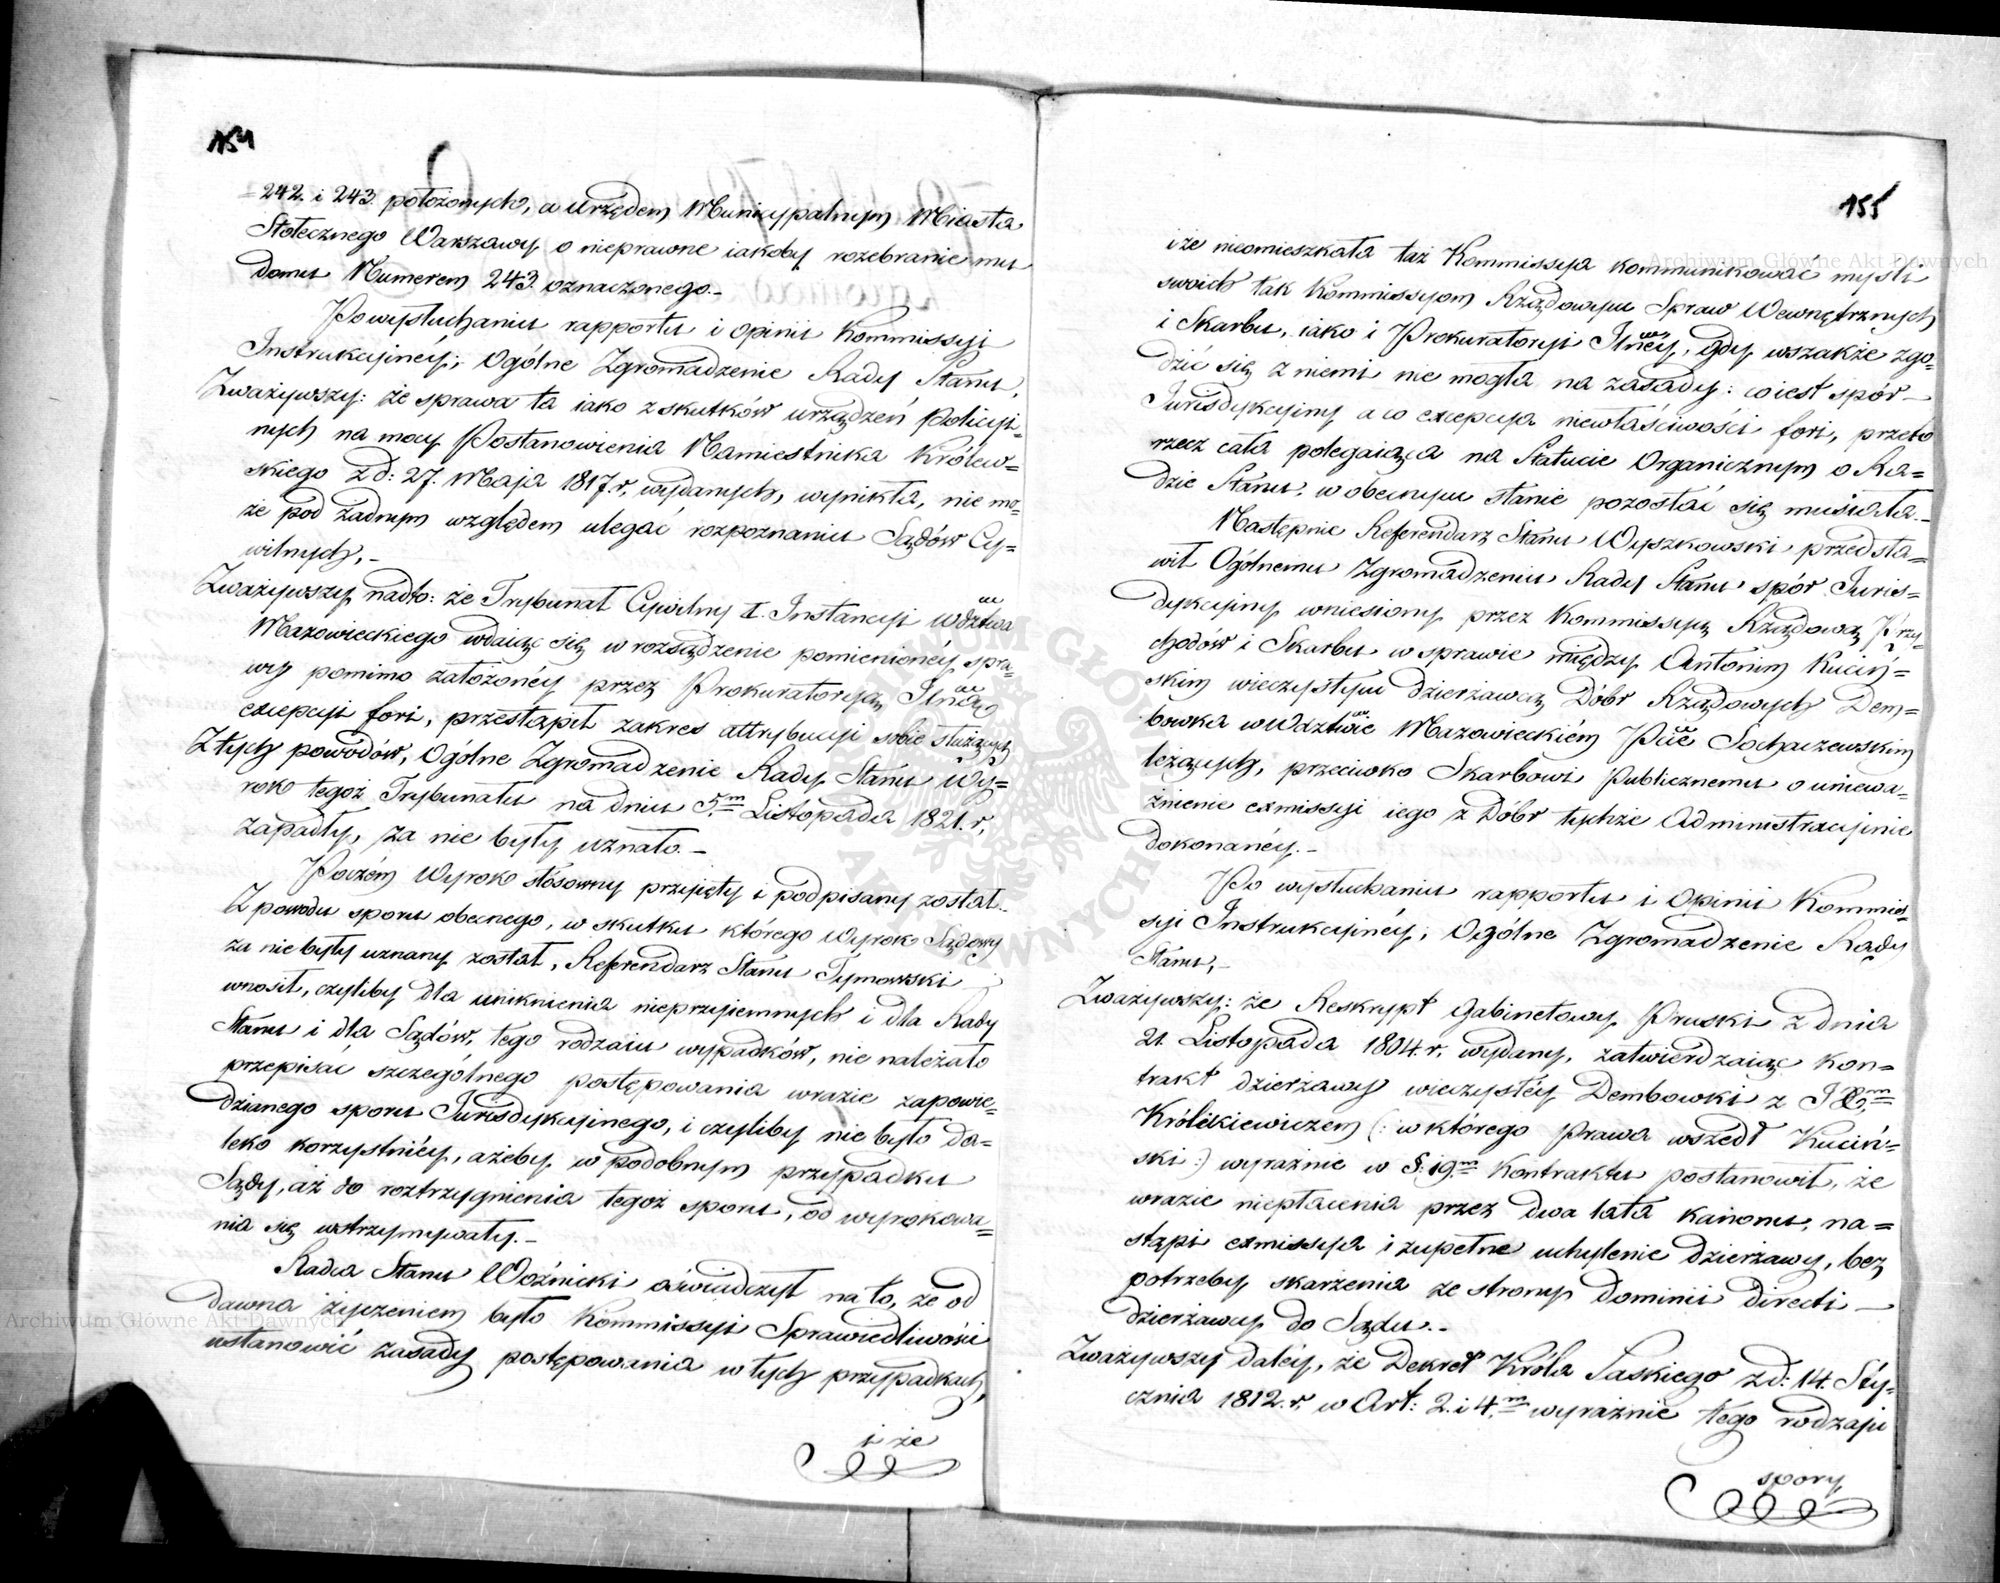 154
242. i 243. położonych, a Urzędem Municypalnym Miasta
Stołecznego Warszawy o nieprawne iakoby rozebranie mu
domu Numerem 243. oznaczonego.–
Po wysłuchaniu rapportu i opinii Kommissyi
Instrukcyinéy; Ogólne Zgromadzenie Rady Stanu,
Zważywszy: że sprawa ta iako z skutków urządzeń Policyi-
nych na mocy Postanowienia Namiestnika Królew=
skiego z d: 27. Maja 1817. r. wydanych, wynikła, nie mo-
że pod żadnym względem ulegać rozpoznaniu Sądów Cy=
wilnych,–
Zważywszy nadto: że Trybunał Cywilny I. Instancyi Wdztwa
Mazowieckiego wdaiąc się w rozsądzenie pomienionéy spra-
wy pomimo założonéy przez Prokuratoryą Jlną
excepcyi fori, przestąpił zakres attrybucyi sobie służących
Z tych powodów, Ogólne Zgromadzenie Rady Stanu Wy=
rok tegoż Trybunału na dniu 5.m Listopada 1821. r.
zapadły, za nie były uznało.–
Poczém Wyrok stósowny przyięty i podpisany został.
Z powodu sporu obecnego, w skutku którego Wyrok Sądowy
za nie były uznany został, Referendarz Stanu Tymowski
wnosił, czyliby dla uniknienia nieprzyiemnych i dla Rady
Stanu i dla Sądów, tego rodzaiu wypadków, nie należało
przepisać szczególnego postępowania w razie zapowie-
dzianego sporu Jurisdykcyinego, i czyliby nie było da=
leko korzystniéy, ażeby w podobnym przypadku
Sądy, aż do roztrzygnienia tegoż sporu, od wyrokowa=
nia się wstrzymywały.–
Radca Stanu Woźnicki oświadczył na to, że od
dawna życzeniem było Kommissyi Sprawiedliwości
ustanowić zasady postępowania w tych przypadkach,
i że
155
i że nieomieszkała taż Kommissya kommunikować myśli
swoich tak Kommissyom Rządowym Spraw Wewnętrznych
i Skarbu, iako i Prokuratoryi Jlnéy, gdy wszakże zgo-
dzić się z niemi nie mogła na zasady: co iest spór
Jurisdykcyiny a co excepcya niewłaściwości fori, przeto
rzecz cała polegaiąca na Statucie Organicznym o Ra=
dzie Stanu, w obecnym stanie pozostać się musiała.–
Następnie Referendarz Stanu Wyszkowski przedsta-
wił Ogólnemu Zgromadzeniu Rady Stanu spór Juris=
dykcyiny wniesiony przez Kommissyą Rządową Przy-
chodów i Skarbu w sprawie między Antonim Kuciń=
skim wieczystym dzierżawcą Dóbr Rządowych Dem=
bowka w Wdztwie Mazowieckiém Pcie Sochaczewskim
leżących, przeciwko Skarbowi Publicznemu o uniewa-
żnienie exmissyi iego z Dóbr tychże Administracyinie
dokonanéy.–
Po wysłuchaniu rapportu i Opinii Kommis-
syi Instrukcyinéy; Ogólne Zgromadzenie Rady
Stanu,–
Zważywszy: że Reskrypt Gabinetowy Pruski z dnia
21. Listopada 1804. r. wydany, zatwierdzaiąc Kon=
trakt dzierżawy wieczystéy Dembowki z
Królikiewiczem (: w którego Prawa wszedł Kuciń=
ski :) wyraźnie w §. 19.m Kontraktu postanowił, że
w razie niepłacenia przez dwa lata kanonu, na=
stąpi exmissya i zupełne uchylenie dzierżawy, bez
potrzeby skarżenia ze strony Dominii directi
dzierżawcy do Sądu.–
Zważywszy daléy, że Dekret Króla Saskiego z d: 14. Sty-
cznia 1812. r. w Art: 2. i 4.m wyraźnie tego rodzaju
spory
Archiwum Główne Akt Dawnych
Archiwum Główne Akt Dawnych